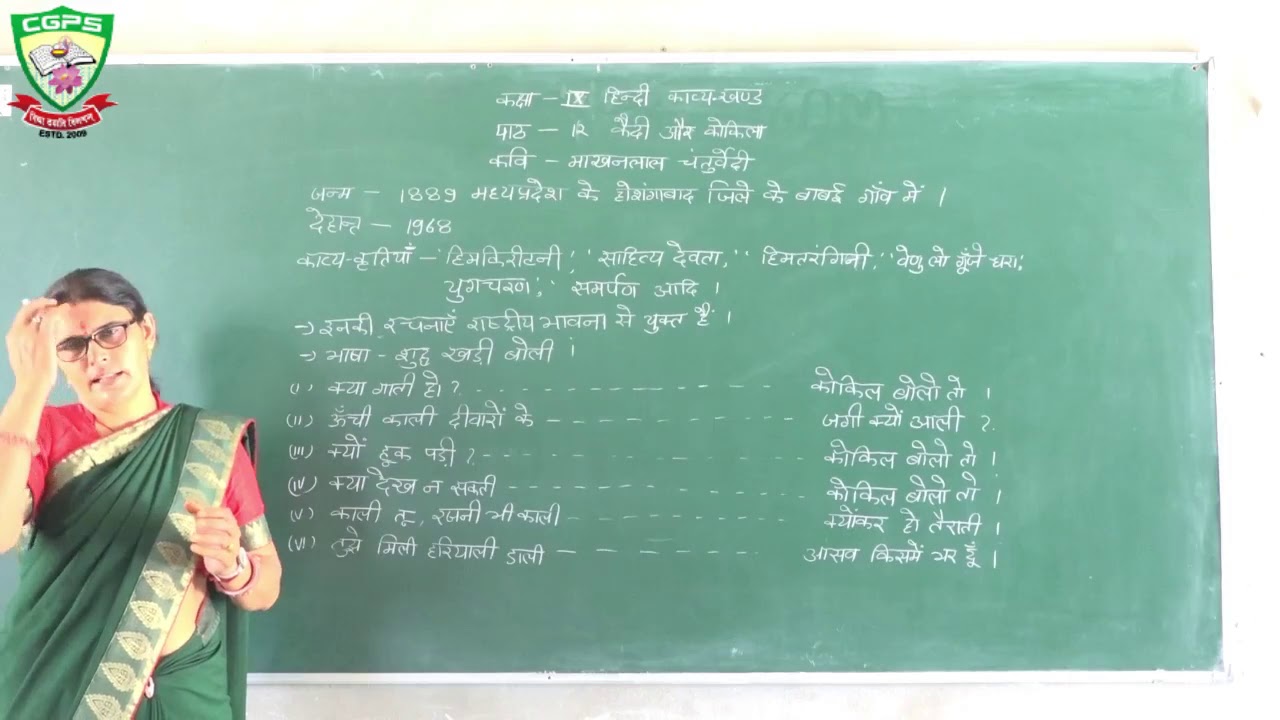 CGPS
विद्या ददाति विनयम्
ESTD. 2009
कक्षा - IX हिन्दी काव्य-खण्ड
पाठ - 12 कैदी और कोकिला
कवि - माखनलाल चतुर्वेदी
जन्म - 1889 मध्यप्रदेश के होशंगाबाद जिले के बाबई गाँव में ।
देहान्त - 1968
काव्य-कृतियाँ - 'हिमकिरीटनी', 'साहित्य देवता,' 'हिमतरंगिनी,' 'वेणु लो गूँजे धरा,'
युगचरण,' समर्पण आदि ।
→ इनकी रचनाएँ राष्ट्रीय भावना से युक्त हैं ।
→ भाषा - शुद्ध खड़ी बोली ।
(i) क्या गाती हो ? - - - - - - - - - - - कोकिल बोलो तो ।
(ii) ऊँची काली दीवारों के - - - - - - - - - - जगी क्यों आली ?
(iii) क्यों हूक पड़ी ? - - - - - - - - - - कोकिल बोलो तो ।
(iv) क्या देख न सकती - - - - - - - - - - कोकिल बोलो तो ।
(v) काली तू, रजनी भी काली - - - - - - - - क्योंकर हो तैराती ।
(vi) तुझे मिली हरियाली डाली - - - - - - आसव किसमें भर दूँ ।